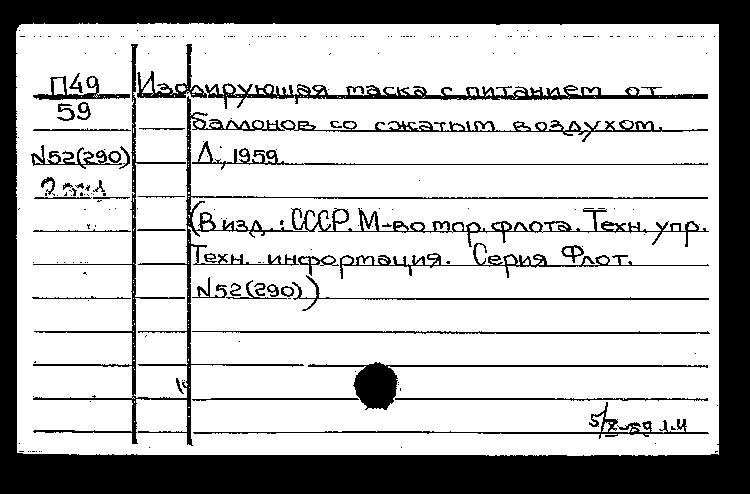 П49 Изолирующая маска с питанием от
59 баллонов со сжатым воздухом.
N52(290) Л., 1959.
2 экз
(В изд.: СССР. М-во мор. флота. Техн. упр.
Техн. информация. Серия Флот.
N52(290))
5/X-59 л.м